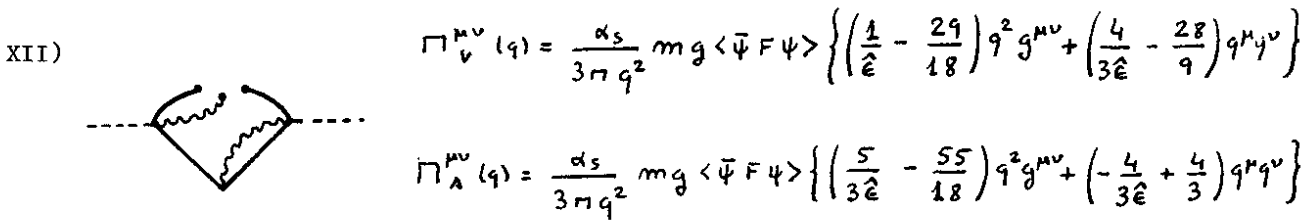 XII)
Π_V^{μν}(q) = \frac{α_s}{3π q^2} m g <\bar{ψ} F ψ> { ( \frac{1}{\hat{ε}} - \frac{29}{18} ) q^2 g^{μν} + ( \frac{4}{3\hat{ε}} - \frac{28}{9} ) q^μ q^ν }
Π_A^{μν}(q) = \frac{α_s}{3π q^2} m g <\bar{ψ} F ψ> { ( \frac{5}{3\hat{ε}} - \frac{55}{18} ) q^2 g^{μν} + ( -\frac{4}{3\hat{ε}} + \frac{4}{3} ) q^μ q^ν }